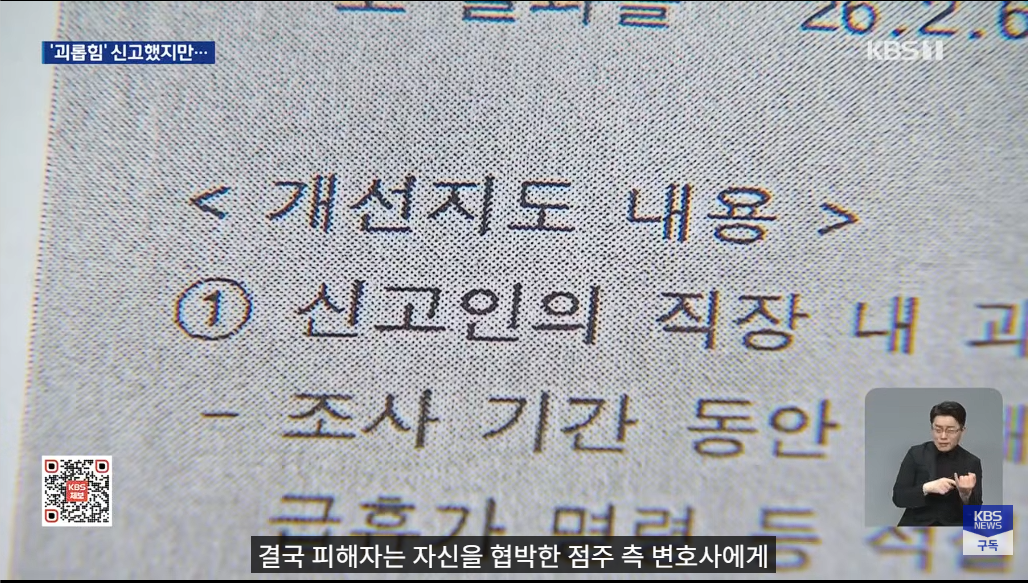 26.2.6
'괴롭힘' 신고했지만…
KBS 1
< 개선지도 내용 >
① 신고인의 직장 내 괴
- 조사 기간 동안
KBS
제보
급휴가 명령 등
KBS
NEWS
구독
결국 피해자는 자신을 협박한 점주 측 변호사에게